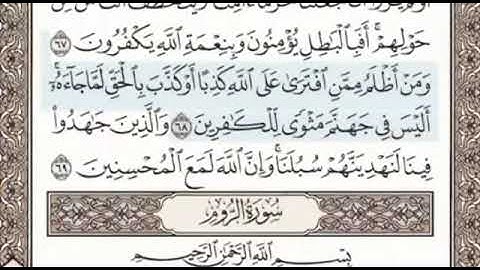 أَوَلَمْ يَرَوْا۟ أَنَّا جَعَلْنَا حَرَمًا ءَامِنًا وَيُتَخَطَّفُ ٱلنَّاسُ مِنْ
حَوْلِهِمْ ۚ أَفَبِٱلْبَـٰطِلِ يُؤْمِنُونَ وَبِنِعْمَةِ ٱللَّهِ يَكْفُرُونَ ٦٧
وَمَنْ أَظْلَمُ مِمَّنِ ٱفْتَرَىٰ عَلَى ٱللَّهِ كَذِبًا أَوْ كَذَّبَ بِٱلْحَقِّ لَمَّا جَآءَهُۥٓ ۚ
أَلَيْسَ فِى جَهَنَّمَ مَثْوًى لِّلْكَـٰفِرِينَ ٦٨ وَٱلَّذِينَ جَـٰهَدُوا۟
فِينَا لَنَهْدِيَنَّهُمْ سُبُلَنَا ۚ وَإِنَّ ٱللَّهَ لَمَعَ ٱلْمُحْسِنِينَ ٦٩
سُورَةُ الرُّومِ
بِسْمِ ٱللَّهِ ٱلرَّحْمَـٰنِ ٱلرَّحِيمِ